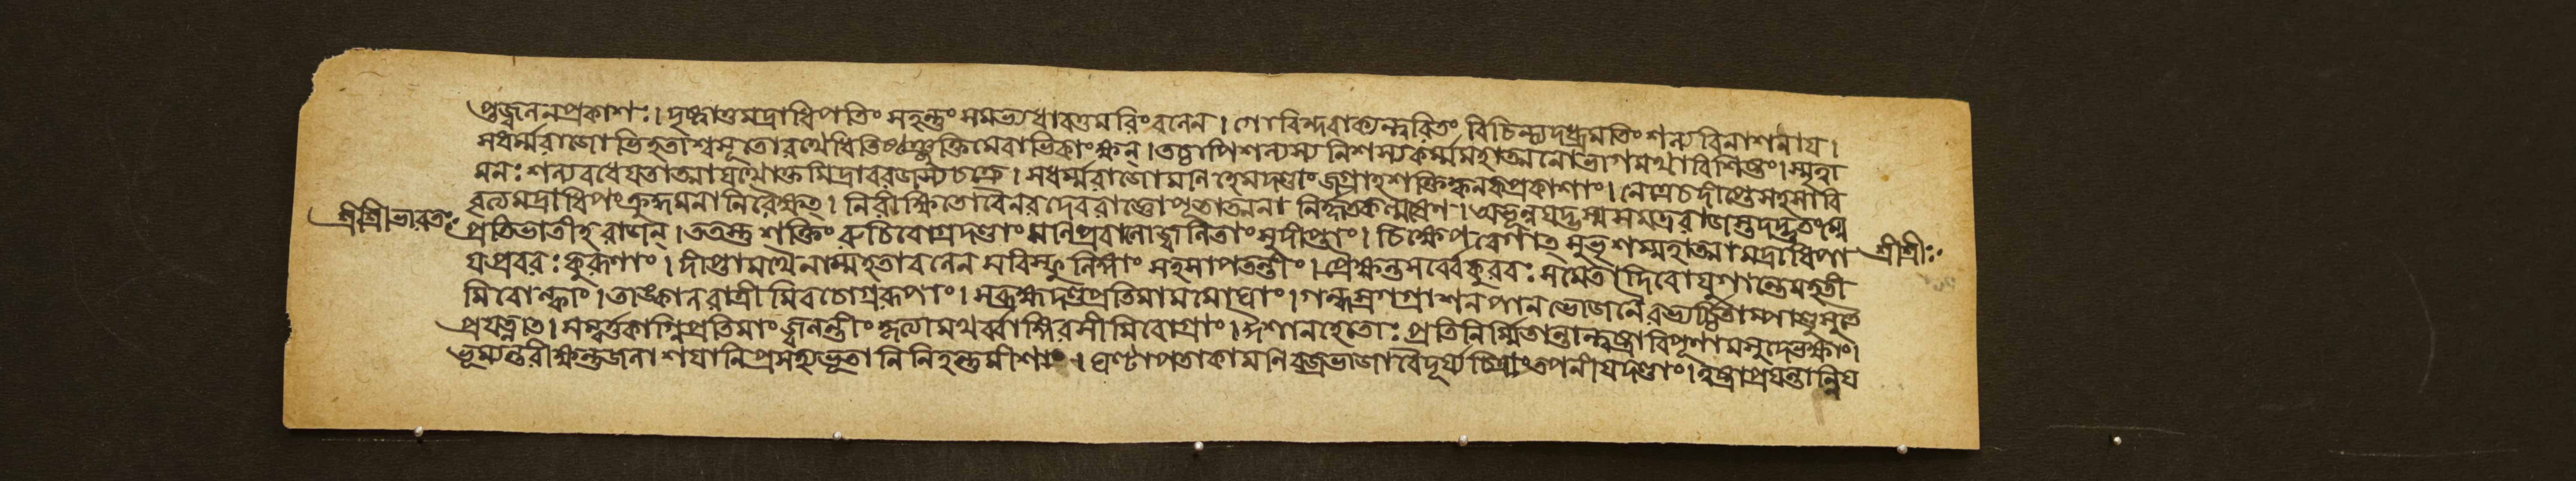 প্তজ্বলনপ্রকাশঃ। দৃষ্ট্বাতুমদ্রাধিপতিং সহন্তুং সমভ্যধাবত্তমরিং বলেন। গোবিন্দবাক্যন্ত্বরিতং বিচিন্ত্য দধ্রেমতিং শল্যবিনাশনায।
সধর্ম্মরাজোভিহতাশ্বসূতোরথেধিতিষ্ঠঞ্ছক্তিমেবাভিকাংক্ষন্। তচ্চাপিশল্যস্য নিশম্যকর্ম্মমহাত্মনোভাগমথাবিশিষ্টং। স্মৃত্বা
মনঃ শল্যবধেযতাত্মাযথোক্তমিন্দ্রাবরজস্যচক্রে। সধর্ম্মরাজোমণিহেমদণ্ডাং জগ্রাহশক্তিঙ্কনকপ্রকাশাং। নেত্রেচদীপ্তেসহসাবি
বৃত্যমদ্রাধিপং ক্রুদ্ধমনানিরৈক্ষত্। নিরীক্ষিতোবৈনরদেবরাজ্ঞোপূতাত্মনা নির্হৃতকল্মষেণ। অভূন্নযদ্ভস্মসমদ্ররাজস্তদদ্ভুতংমে
শ্রীশ্রীভারতঃ প্রতিভাতীহ রাজন্। ততস্তুশক্তিং রুচিরোগ্রদণ্ডাং মণিপ্রবালোজ্জ্বলিতাং সুদীপ্তাং। চিক্ষেপবেগাত্ সুভৃশম্মহাত্মামদ্রাধিপা শ্রীশ্রীঃ
যপ্রবরঃ কুরূণাং। দীপ্তামথৈনাম্মহতাবলেন সবিস্ফুলিঙ্গাং সহসাপতন্তীং। প্রৈক্ষন্তসর্ব্বেকুরবঃ সমেতাদিবোযুগান্তেমহতী
মিবোল্কাং। তাঙ্কালরাত্রীমিবচোগ্ররূপাং। সব্রহ্মদণ্ডপ্রতিমামমোঘাং। গন্ধস্রগগ্রাশনপানভোজনৈরভ্যর্চ্চিতাম্পাণ্ডুসুতৈঃ
প্রযত্নাত। সম্বর্ত্তকাগ্নিপ্রতিমাং জ্বলন্তীং কৃত্যামথর্ব্বাঙ্গিরসীমিবোগ্রাং। ঈশানহেতোঃ প্রতিনির্ম্মিতান্তান্ত্বষ্ট্রারিপূণামসুদেহভক্ষাং।
ভূম্যন্তরীক্ষন্তুজলাশযানিপ্রসহ্যভূতানিনিহন্তুমীশাং। ঘণ্টাপতাকামণিবজ্রভাজাবৈদূর্য্যচিত্রাংতপনীযদণ্ডাং। ত্বষ্ট্রাপ্রযত্নান্নিয